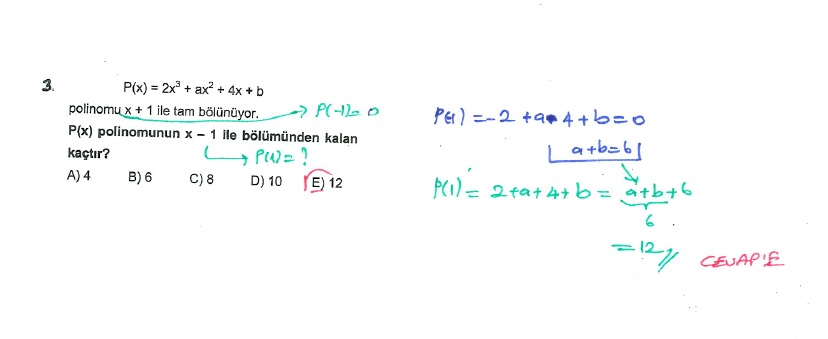 3.
P(x) = 2x³ + ax² + 4x + b
polinomu x + 1 ile tam bölünüyor. → P(-1)= 0
P(x) polinomunun x − 1 ile bölümünden kalan
kaçtır?
→ P(1) = ?
A) 4 B) 6 C) 8 D) 10 E) 12
P(-1) = -2 + a - 4 + b = 0
a+b=6
P(1) = 2+a+4+b = a+b+6
6
= 12 //
CEVAP:E